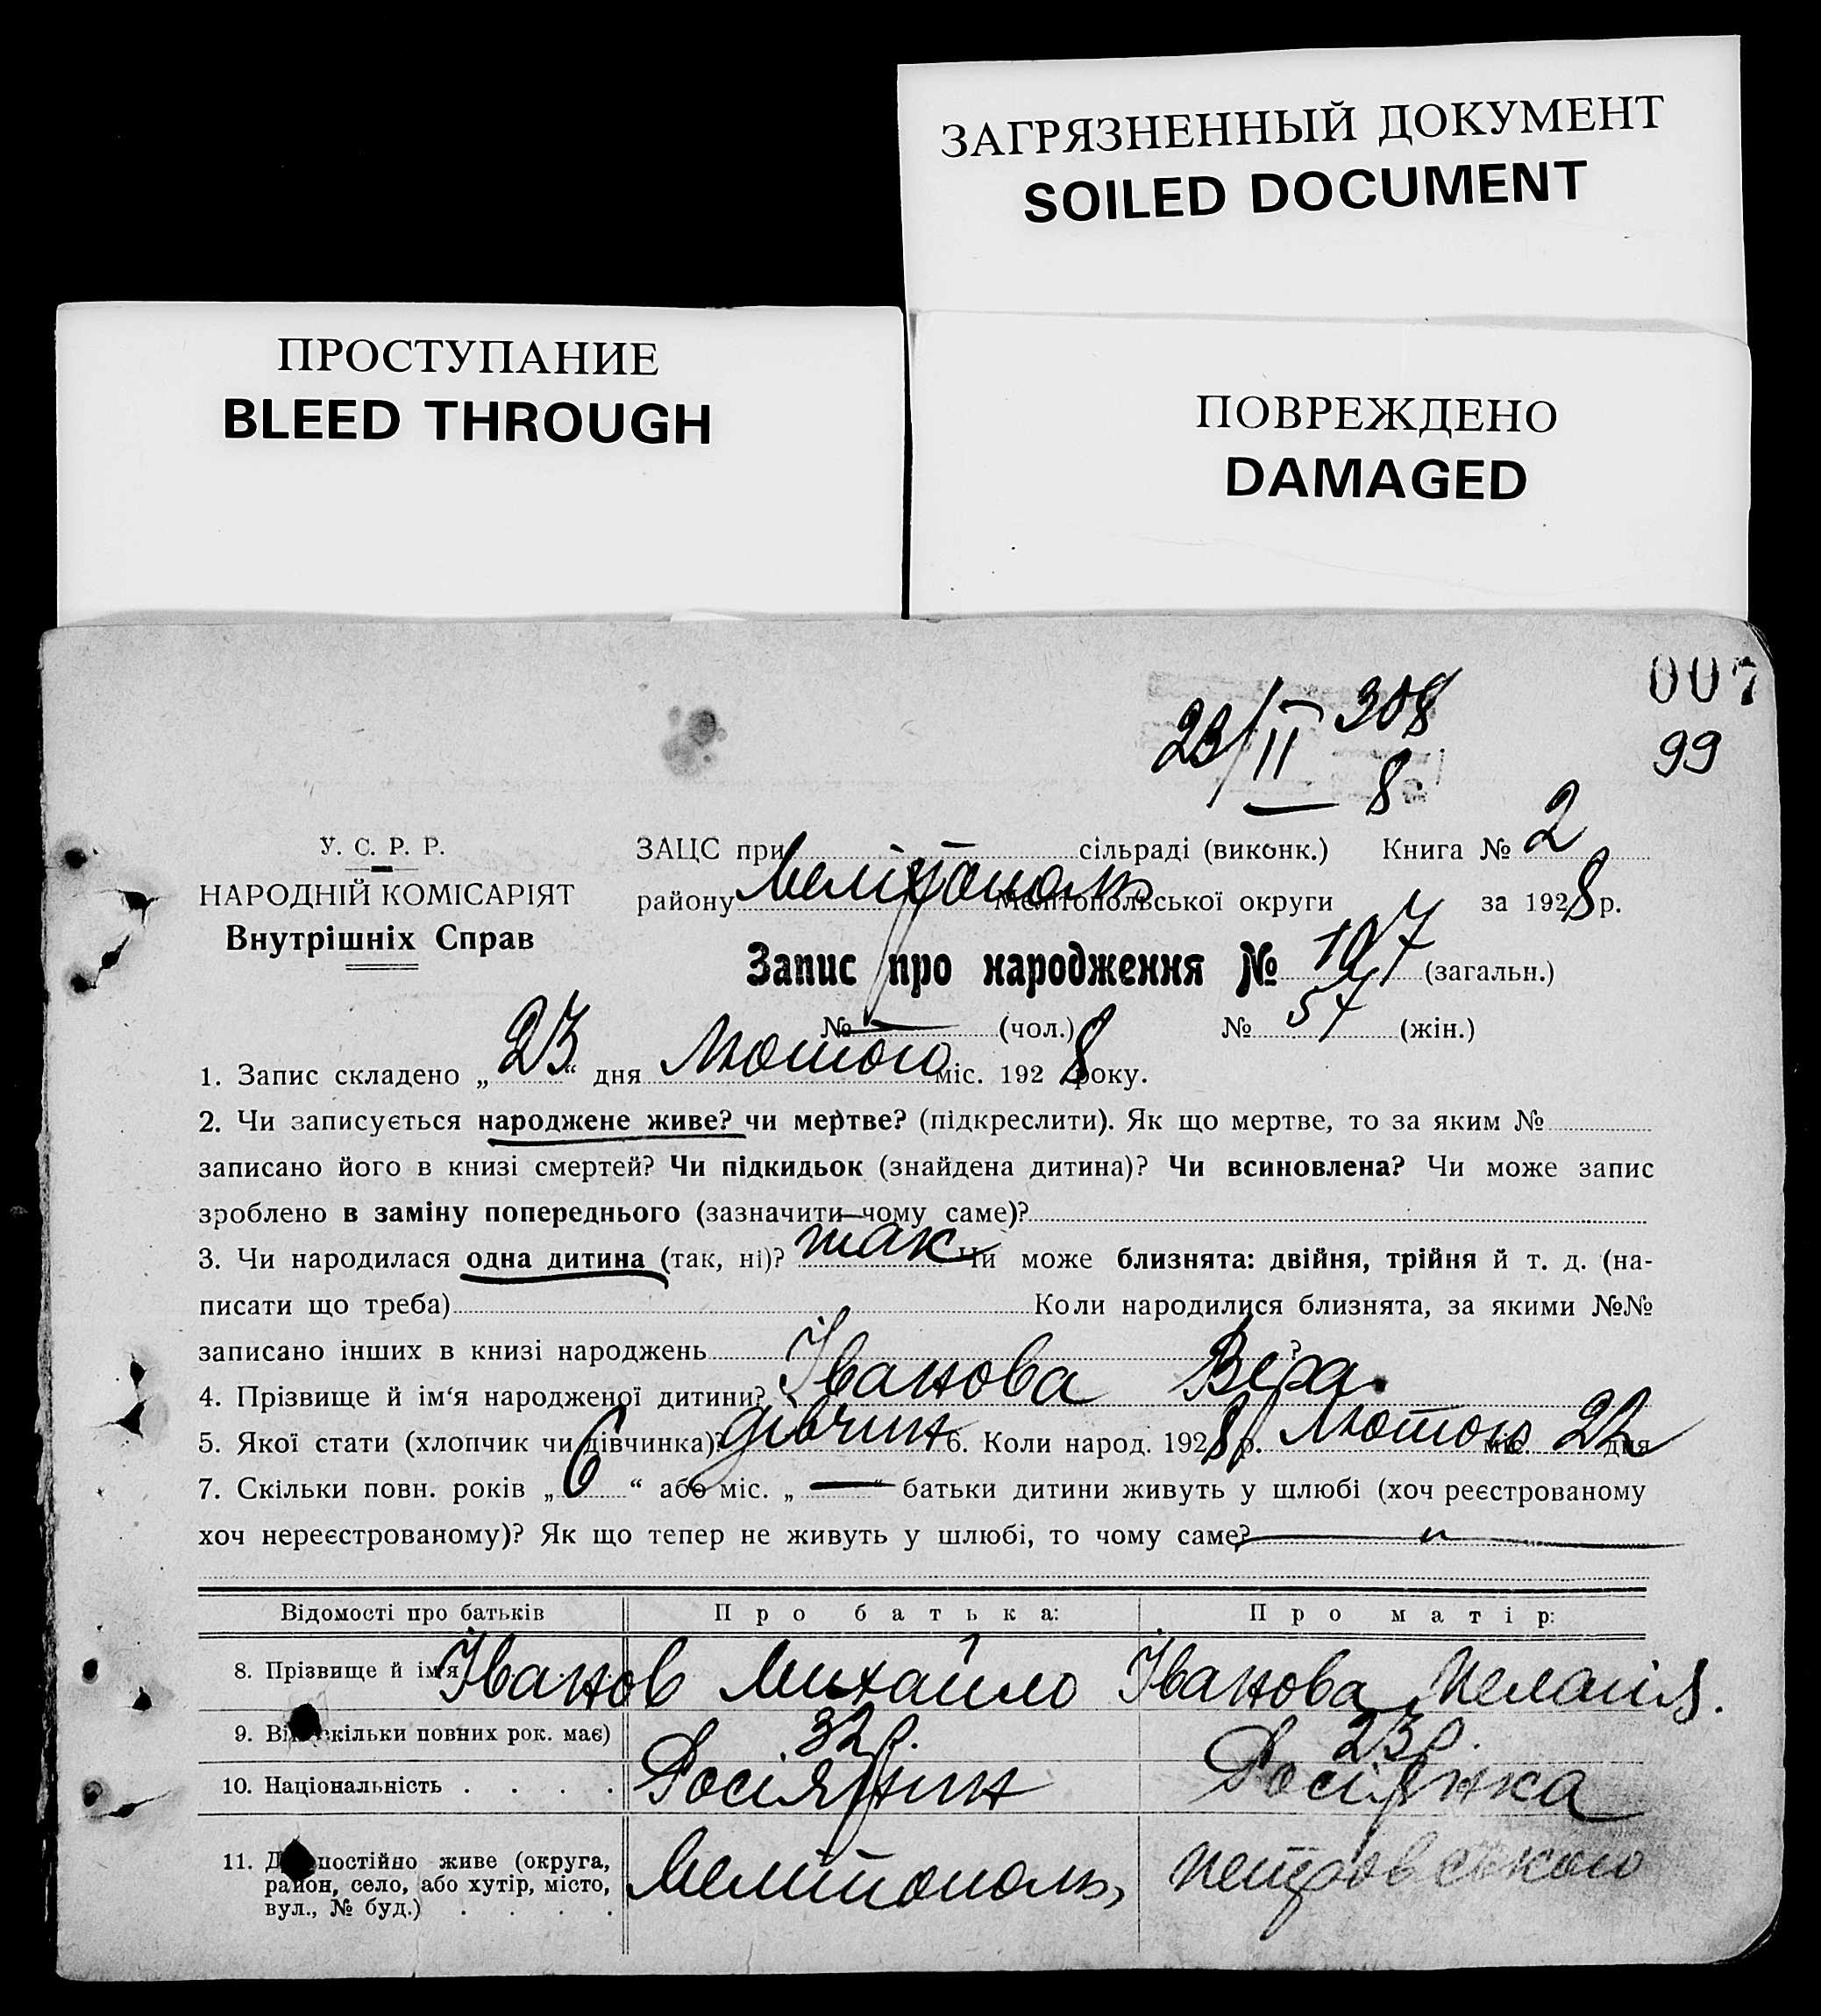 ЗАГРЯЗНЕННЫЙ ДОКУМЕНТ
SOILED DOCUMENT
ПРОСТУПАНИЕ
BLEED THROUGH
ПОВРЕЖДЕНО
DAMAGED
007
23/II 308
8.
99
У. С. Р. Р.
НАРОДНІЙ КОМІСАРІЯТ
Внутрішніх Справ
ЗАЦС при сільраді (виконк.) Книга № 2
району Мелітополь Мелітопольської округи за 1928 р.
Запис про народження № 107 (загальн.)
№ — (чол.) № 57 (жін.)
1. Запис складено „23“ дня Лютого міс. 1928 року.
2. Чи записується народжене живе? чи мертве? (підкреслити). Як що мертве, то за яким №
записано його в книзі смертей? Чи підкидьок (знайдена дитина)? Чи всиновлена? Чи може запис
зроблено в заміну попереднього (зазначити—чому саме)?
3. Чи народилася одна дитина (так, ні)? так Чи може близнята: двійня, трійня й т. д. (на-
писати що треба) Коли народилися близнята, за якими №№
записано інших в книзі народжень ?
4. Прізвище й ім‘я народженої дитини? Іванова Віра.
5. Якої стати (хлопчик чи дівчинка)? дівчин 6. Коли народ. 1928 р. Лютого міс. 22 дня
7. Скільки повн. років „6“ або міс. „—“ батьки дитини живуть у шлюбі (хоч реєстрованому
хоч нереєстрованому)? Як що тепер не живуть у шлюбі, то чому саме? — „ —
Відомості про батьків Про батька: Про матір:
8. Прізвище й ім‘я Іванов Михайло Іванова Меланія.
9. Вік скільки повних рок. має) 32 р. 23 р.
10. Національність . . . . Росіянин Росіянка
11. Де постійно живе (округа,
район, село, або хутір, місто,
вул., № буд.) . . . . Мелітополь, Петровського